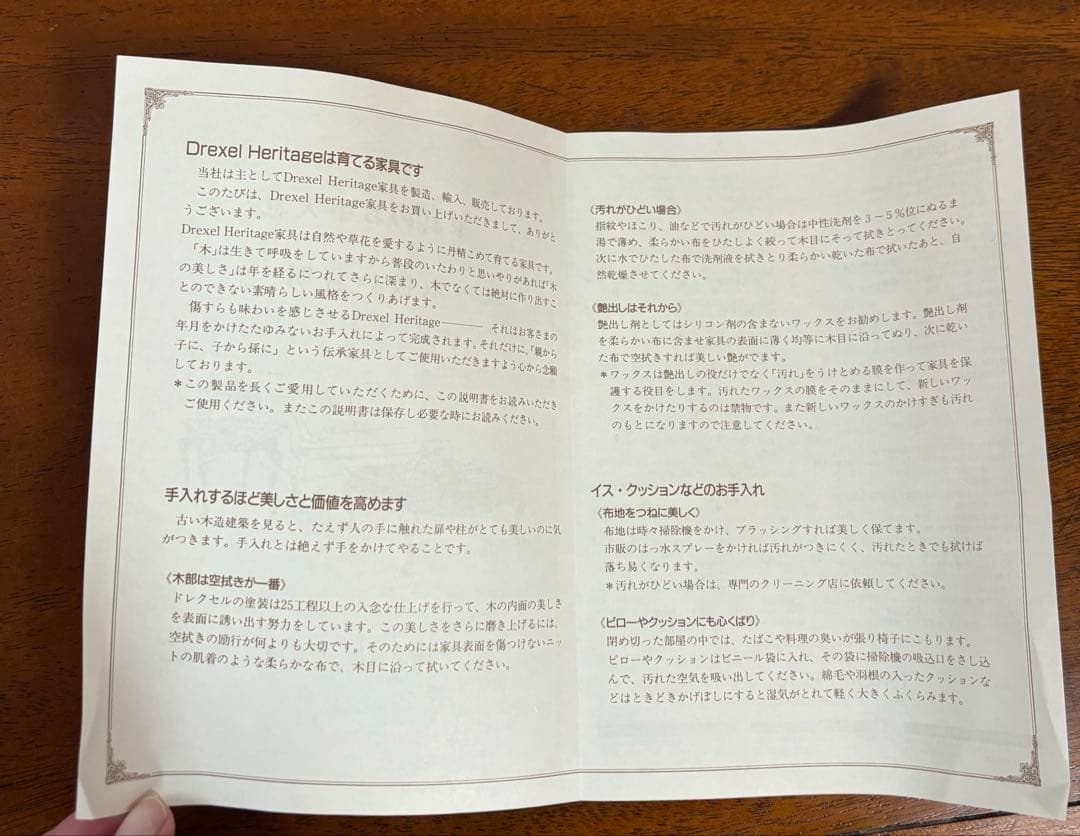 Drexel Heritageは育てる家具です
当社は主としてDrexel Heritage家具を製造、輸入、販売しております。
このたびは、Drexel Heritage家具をお買い上げいただきまして、ありがと
うございます。
Drexel Heritage家具は自然や草花を愛するように丹精こめて育てる家具です。
「木」は生きて呼吸をしていますから普段のいたわりと思いやりがあれば「木
の美しさ」は年を経るにつれてさらに深まり、木でなくては絶対に作り出すこ
とのできない素晴らしい風格をつくりあげます。
傷すらも味わいを感じさせるDrexel Heritage――― それはお客さまの
年月をかけたたゆみないお手入れによって完成されます。それだけに、「親から
子に、子から孫に」という伝承家具としてご使用いただきますよう心から念願
しております。
＊この製品を長くご愛用していただくために、この説明書をお読みいただき
ご使用ください。またこの説明書は保存し必要な時にお読みください。
手入れするほど美しさと価値を高めます
古い木造建築を見ると、たえず人の手に触れた扉や柱がとても美しいのに気
がつきます。手入れとは絶えず手をかけてやることです。
《木部は空拭きが一番》
ドレクセルの塗装は25工程以上の入念な仕上げを行って、木の内面の美しさ
を表面に誘い出す努力をしています。この美しさをさらに磨き上げるには、
空拭きの励行が何よりも大切です。そのためには家具表面を傷つけないニッ
トの肌着のような柔らかな布で、木目に沿って拭いてください。
《汚れがひどい場合》
指紋やほこり、油などで汚れがひどい場合は中性洗剤を3～5％位にぬるま
湯で薄め、柔らかい布をひたしよく絞って木目にそって拭きとってください。
次に水でひたした布で洗剤液を拭きとり柔らかい乾いた布で拭いたあと、自
然乾燥させてください。
《艶出しはそれから》
艶出し剤としてはシリコン剤の含まないワックスをお勧めします。艶出し剤
を柔らかい布に含ませ家具の表面に薄く均等に木目に沿ってぬり、次に乾い
た布で空拭きすれば美しい艶がでます。
＊ワックスは艶出しの役だけでなく「汚れ」をうけとめる膜を作って家具を保
護する役目をします。汚れたワックスの膜をそのままにして、新しいワッ
クスをかけたりするのは禁物です。また新しいワックスのかけすぎも汚れ
のもとになりますので注意してください。
イス・クッションなどのお手入れ
《布地をつねに美しく》
布地は時々掃除機をかけ、ブラッシングすれば美しく保てます。
市販のはっ水スプレーをかければ汚れがつきにくく、汚れたときでも拭けば
落ち易くなります。
＊汚れがひどい場合は、専門のクリーニング店に依頼してください。
《ピローやクッションにも心くばり》
閉め切った部屋の中では、たばこや料理の臭いが張り椅子にこもります。
ピローやクッションはビニール袋に入れ、その袋に掃除機の吸込口をさし込
んで、汚れた空気を吸い出してください。綿毛や羽根の入ったクッションな
どはときどきかげぼしにすると湿気がとれて軽く大きくふくらみます。